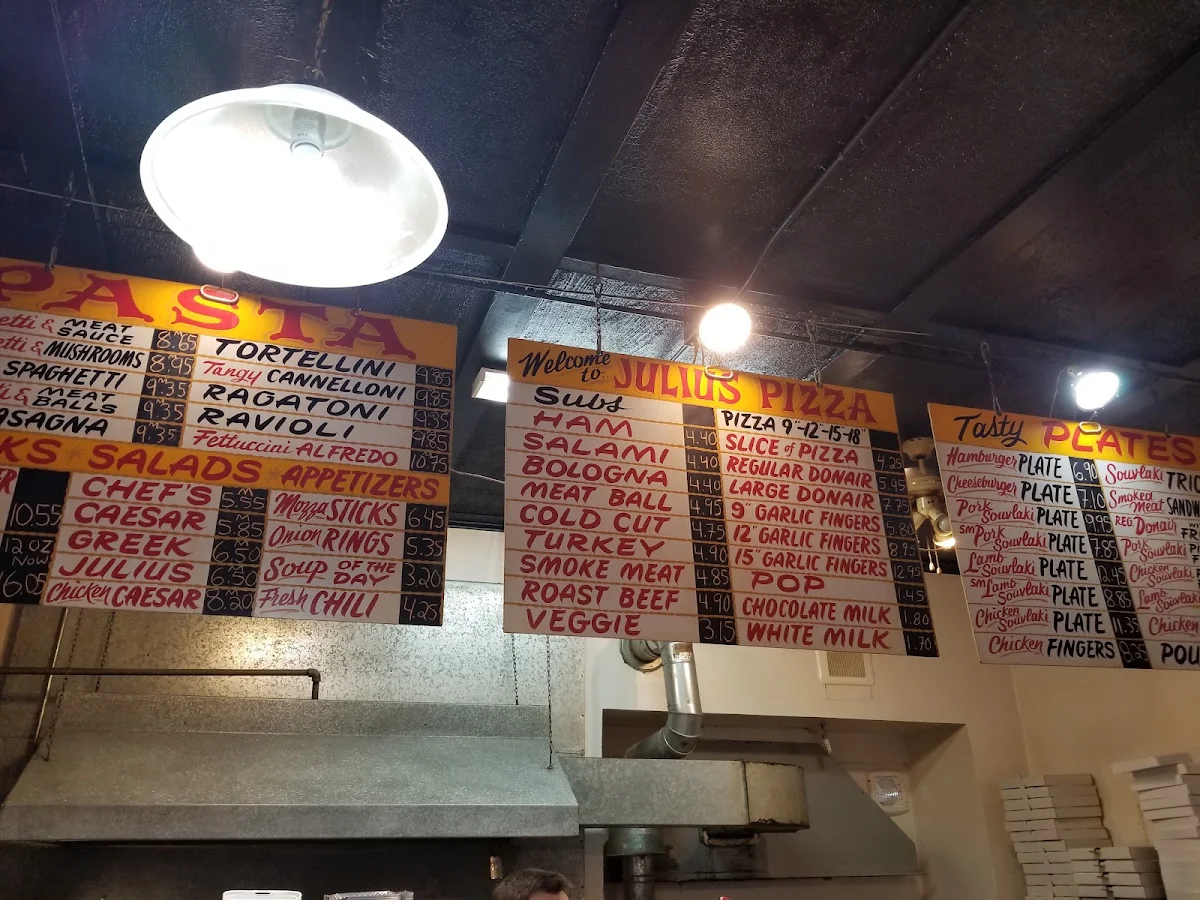 PASTA
MEAT SAUCE 8.65
& MUSHROOMS 8.95
SPAGHETTI 9.35
& MEAT BALLS 9.35
LASAGNA 9.35
TORTELLINI 9.85
Tangy CANNELLONI 9.85
RAGATONI 9.85
RAVIOLI 9.85
Fettuccini ALFREDO 10.75
SALADS APPETIZERS
10.55
12 OZ NOW
16.05
CHEF'S 5.55
CAESAR
GREEK 6.50
JULIUS 6.50
Chicken CAESAR 8.20
Mozza STICKS 6.45
Onion RINGS 5.35
Soup OF THE DAY 3.20
Fresh CHILI 4.25
Welcome to JULIUS PIZZA
Subs
HAM 4.40
SALAMI 4.40
BOLOGNA 4.40
MEAT BALL 4.95
COLD CUT 4.75
TURKEY 4.90
SMOKE MEAT 4.85
ROAST BEEF 4.90
VEGGIE 3.15
PIZZA 9"-12"-15-18"
SLICE of PIZZA
REGULAR DONAIR 5.95
LARGE DONAIR 7.75
9" GARLIC FINGERS 5.80
12" GARLIC FINGERS 8.95
15" GARLIC FINGERS 12.95
POP 1.45
CHOCOLATE MILK 1.80
WHITE MILK 1.70
Tasty PLATES
Hamburger PLATE 6.90
Cheeseburger PLATE 7.10
Pork Souvlaki PLATE 9.95
sm Pork Souvlaki PLATE 7.85
Lamb Souvlaki PLATE
sm Lamb Souvlaki PLATE 8.85
Chicken Souvlaki PLATE 11.35
Chicken FINGERS
Souvlaki
Smoked Meat
REG. Donair
Pork Souvlaki
Chicken Souvlaki
Lamb Souvlaki
Chicken